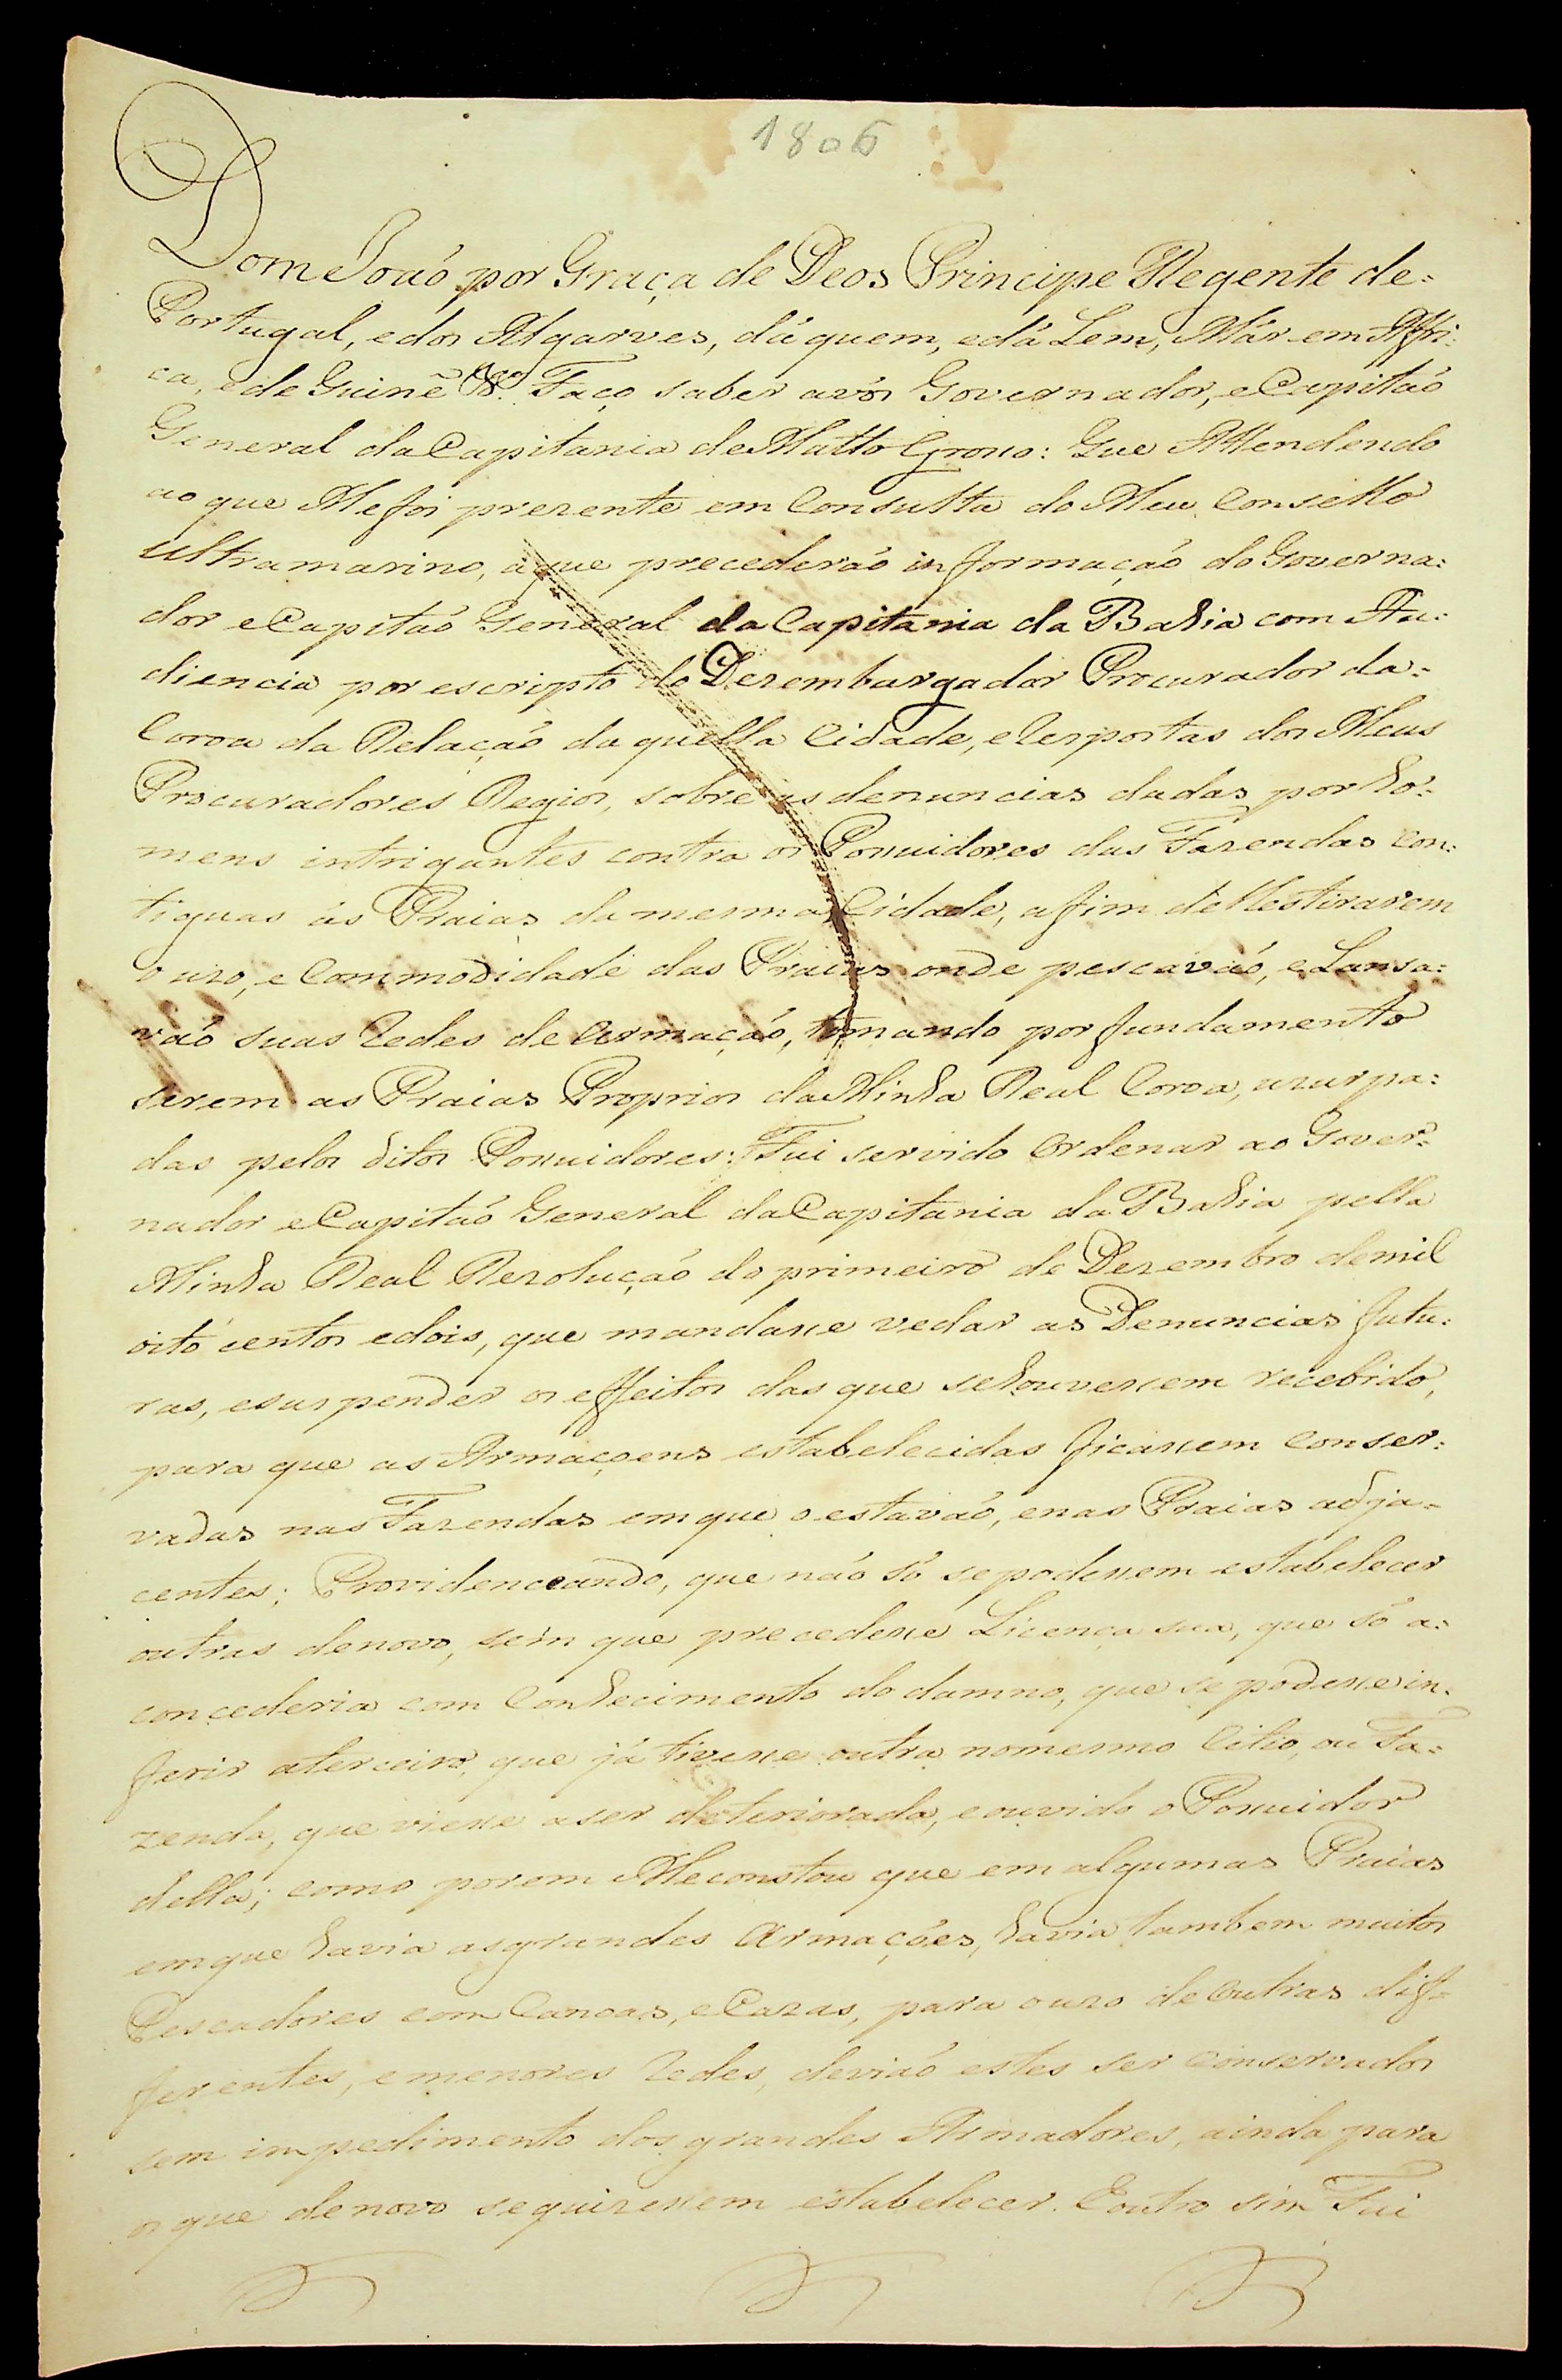 1806
Dom João por Graça de Deos Principe Regente de=
Portugal, e dos Algarves, dáquem, e dá Lem, Már em Affri:
ca, e de Guiné &ca. Faço saber avós Governador, e Capitáo
General da Capitania de Matto Grosso: Que Attendendo
ao que Me foi prezente em Consulta do Meu Conselho
Ultramarino, a que precederáo informaçáo do Governa:
dor e Capitáo General da Capitania da Bahia com Au:
diencia por escripto do Dezembargador Procurador da=
Coroa da Relaçáo daquella Cidade, e Respostas dos Meus
Procuradores Regios, sobre as denuncias dadas por ho:
mens intrigantes contra os Possuidores das Fazendas con:
tiguas ás Praias da mesma Cidade, afim de lhes tirarem
o uzo, e Commodidade das Praias onde pescaváo, e Lansa:
váo suas Redes de Armaçáo, tomando por fundamento
serem as Praias Proprios da Minha Real Coroa, uzurpa:
das pelos ditos Possuidores: Fui servido Ordenar ao Gover:
nador e Capitáo General da Capitania da Bahia pella
Minha Real Rezoluçáo do primeiro de Dezembro de mil
oito centos e dois, que mandasse vedar as Denuncias futu:
ras, e suspender os effeitos das que se houvessem recebido,
para que as Armaçoens estabelecidas ficassem conser:
vadas nas Fazendas em que o estaváo, e nas Praias adja=
centes; Providenceando, que náo só se podessem estabelecer
outras de novo, sem que precedesse Licença sua, que só a:
concederia com Conhecimento do damno, que se podesse in:
ferir a terceiro, que já tivesse outra no mesmo Citio, ou Fa:
zenda, que viesse a ser deteriorada, e ouvido o Possuidor
della; como porem Me constou que em algumas Praias
em que havia as grandes Armações, havia tambem muitos
Pescadores com Canoas, e Cazas, para o uzo de outras dif=
ferentes, e menores Redes, deviáo estes ser conservados
sem impedimento dos grandes Armadores, ainda para
os que de novo se quizessem estabelecer. E outro sim Fui